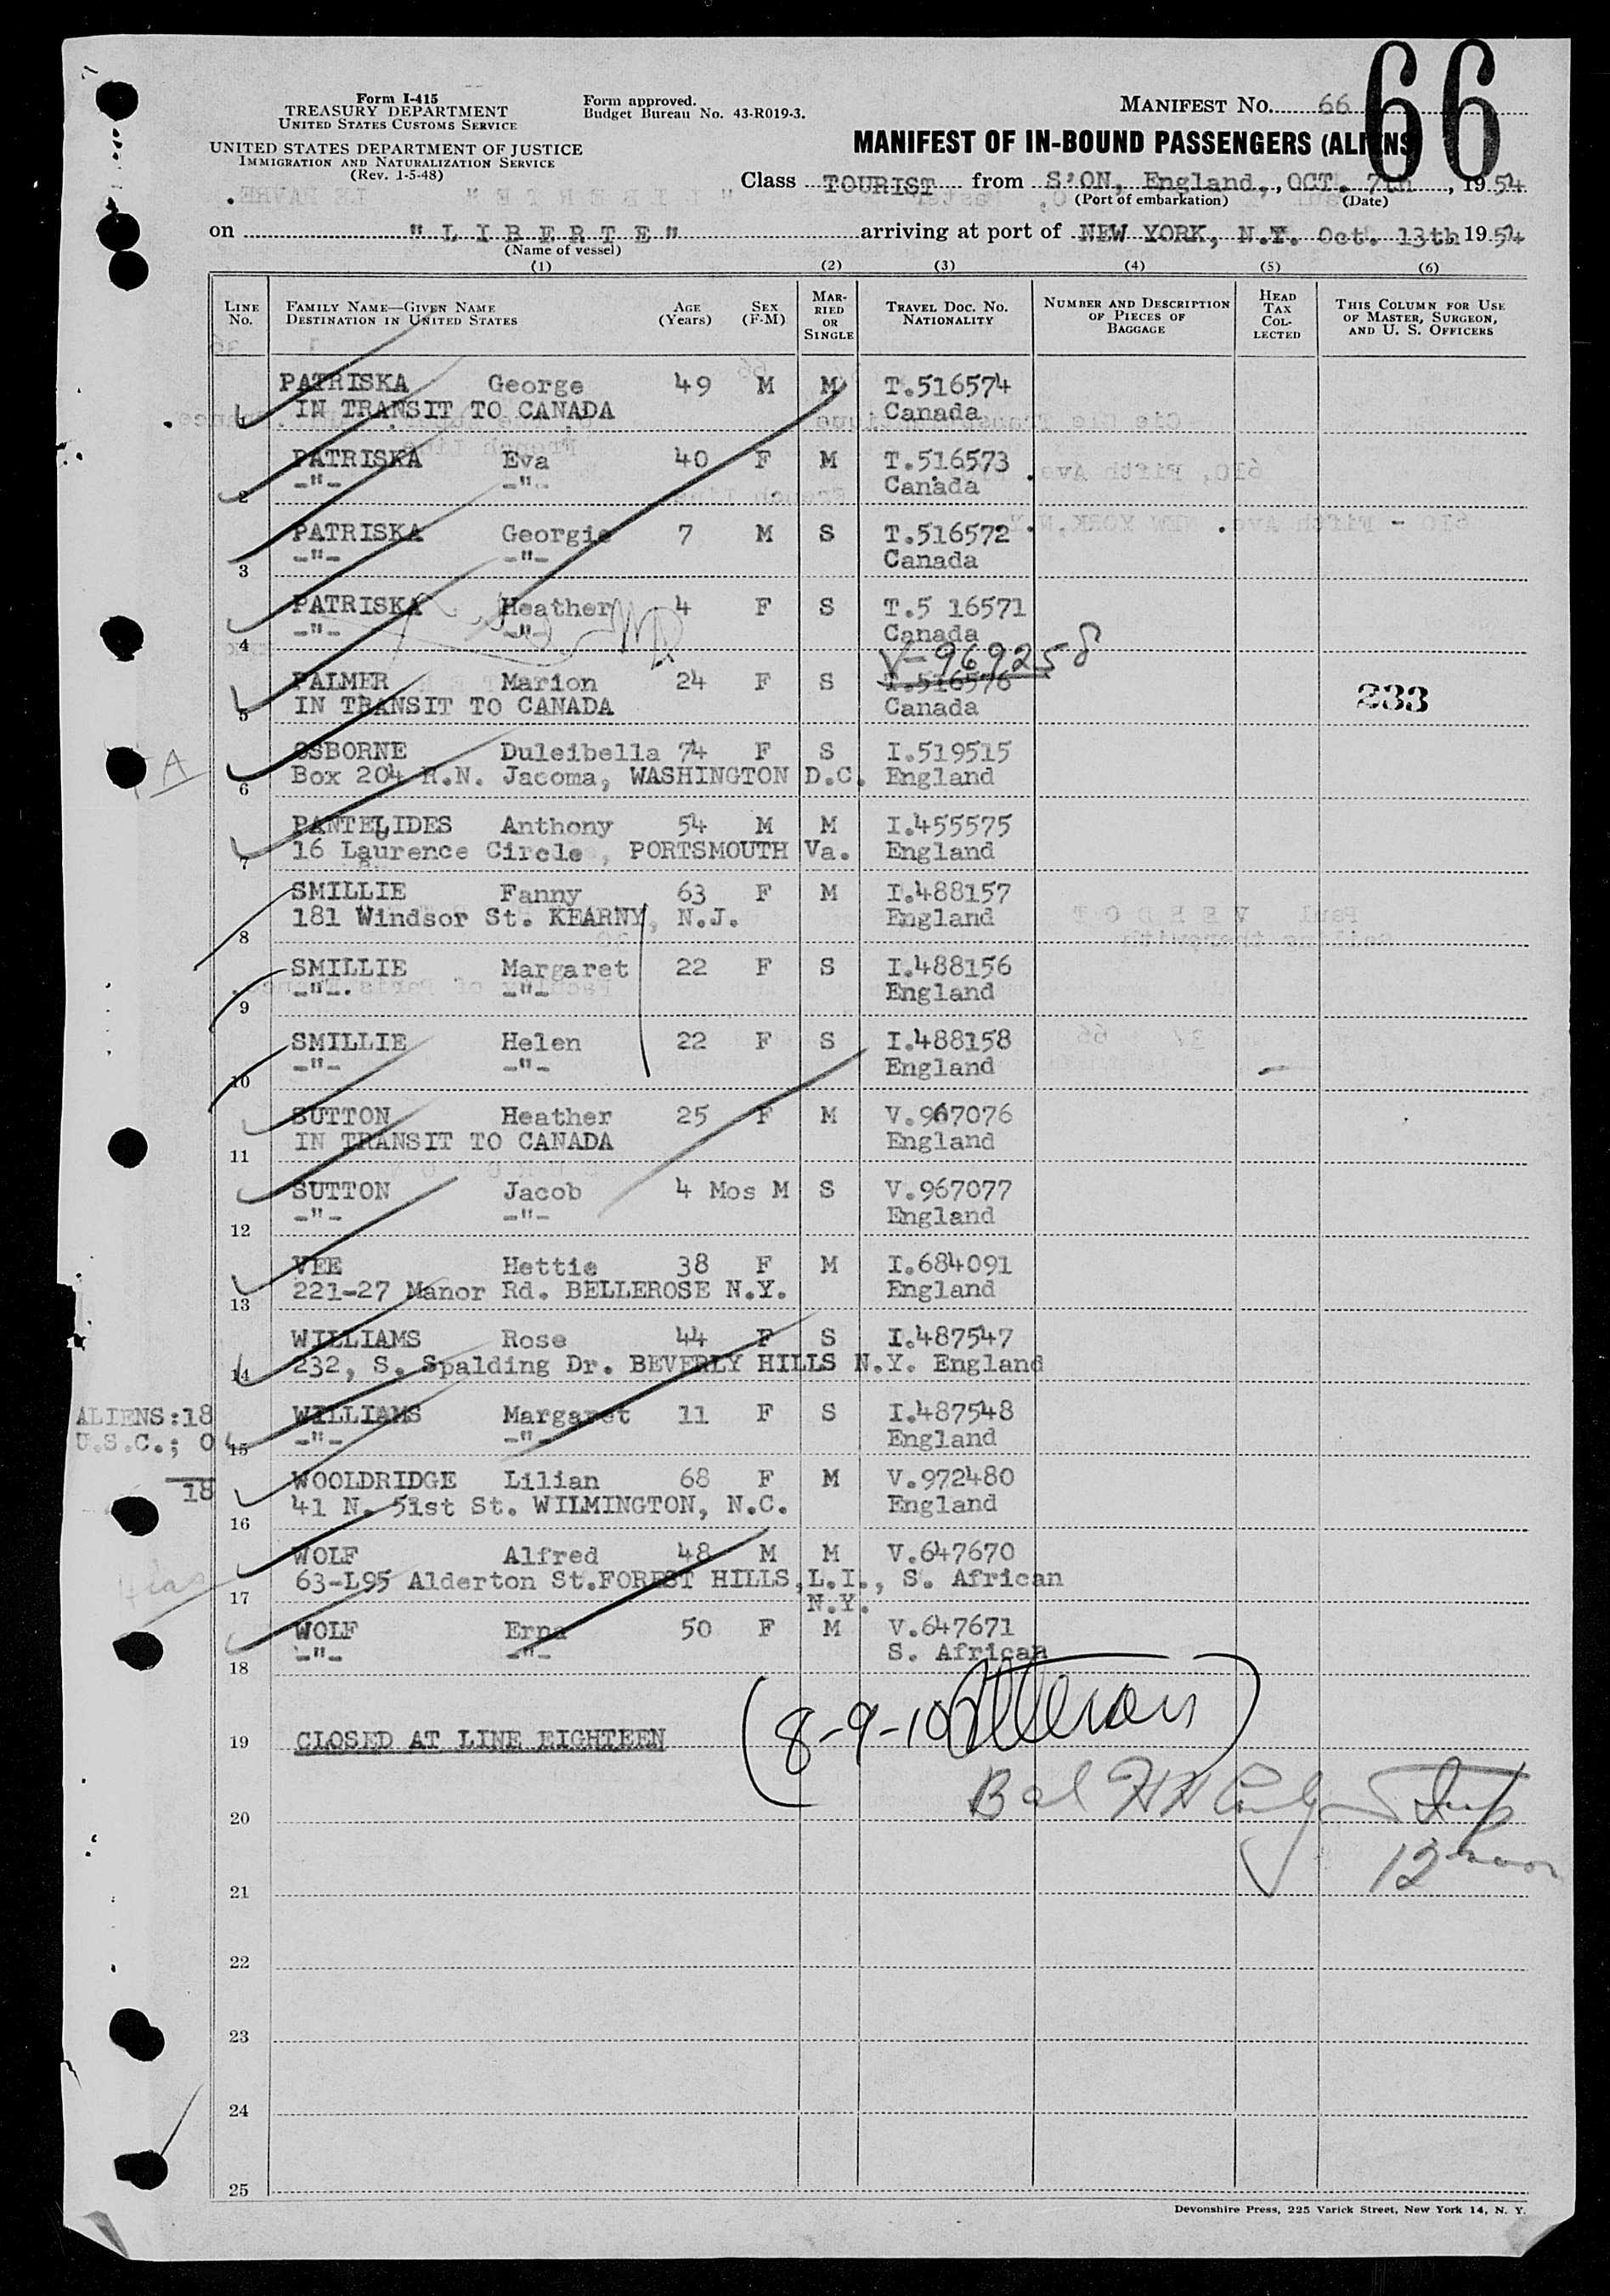 66
Form I-415
TREASURY DEPARTMENT
UNITED STATES CUSTOMS SERVICE
UNITED STATES DEPARTMENT OF JUSTICE
IMMIGRATION AND NATURALIZATION SERVICE
(Rev. 1-5-48)
Form approved.
Budget Bureau No. 43-R019-3.
MANIFEST NO. 66
MANIFEST OF IN-BOUND PASSENGERS (ALIENS)
Class TOURIST from S'ON, England, OCT. 7th, 1954
(Port of embarkation) (Date)
on "LIBERTE" arriving at port of NEW YORK, N.Y. Oct. 13th 1954
(Name of vessel)
(1) (2) (3) (4) (5) (6)
LINE NO. FAMILY NAME—GIVEN NAME DESTINATION IN UNITED STATES AGE (Years) SEX (F-M) MARRIED OR SINGLE TRAVEL DOC. NO. NATIONALITY NUMBER AND DESCRIPTION OF PIECES OF BAGGAGE HEAD TAX COLLECTED THIS COLUMN FOR USE OF MASTER, SURGEON, AND U. S. OFFICERS
PATRISKA George 49 M M T.516574
1 IN TRANSIT TO CANADA Canada
PATRISKA Eva 40 F M T.516573
2 -"- -"- Canada
PATRISKA Georgie 7 M S T.516572
3 -"- -"- Canada
PATRISKA Heather 4 F S T.5 16571
4 -"- -"- Canada
V-969258
PALMER Marion 24 F S T.516576
5 IN TRANSIT TO CANADA Canada 233
OSBORNE Duleibella 74 F S I.519515
A
6 Box 204 R.N. Jacoma, WASHINGTON D.C. England
PANTELIDES Anthony 54 M M I.455575
7 16 Laurence Circle, PORTSMOUTH Va. England
SMILLIE Fanny 63 F M I.488157
8 181 Windsor St. KEARNY, N.J. England
SMILLIE Margaret 22 F S I.488156
9 -"-. -"- England
SMILLIE Helen 22 F S I.488158
10 -"- -"- England
SUTTON Heather 25 F M V.967076
11 IN TRANSIT TO CANADA England
SUTTON Jacob 4 Mos M S V.967077
12 -"- -"- England
VEE Hettie 38 F M I.684091
13 221-27 Manor Rd. BELLEROSE N.Y. England
WILLIAMS Rose 44 F S I.487547
14 232, S. Spalding Dr. BEVERLY HILLS N.Y. England
ALIENS:18
WILLIAMS Margaret 11 F S I.487548
U.S.C.; 0
15 -"- -"- England
18
WOOLDRIDGE Lilian 68 F M V.972480
16 41 N. 51st St. WILMINGTON, N.C. England
WOLF Alfred 48 M M V.647670
17 63-L95 Alderton St.FOREST HILLS,L.I., S. African
N.Y.
WOLF Erna 50 F M V.647671
18 -"- -"- S. African
19 CLOSED AT LINE EIGHTEEN
(8-9-10
Bal
12 noon
20
21
22
23
24
25
Devonshire Press, 225 Varick Street, New York 14, N. Y.